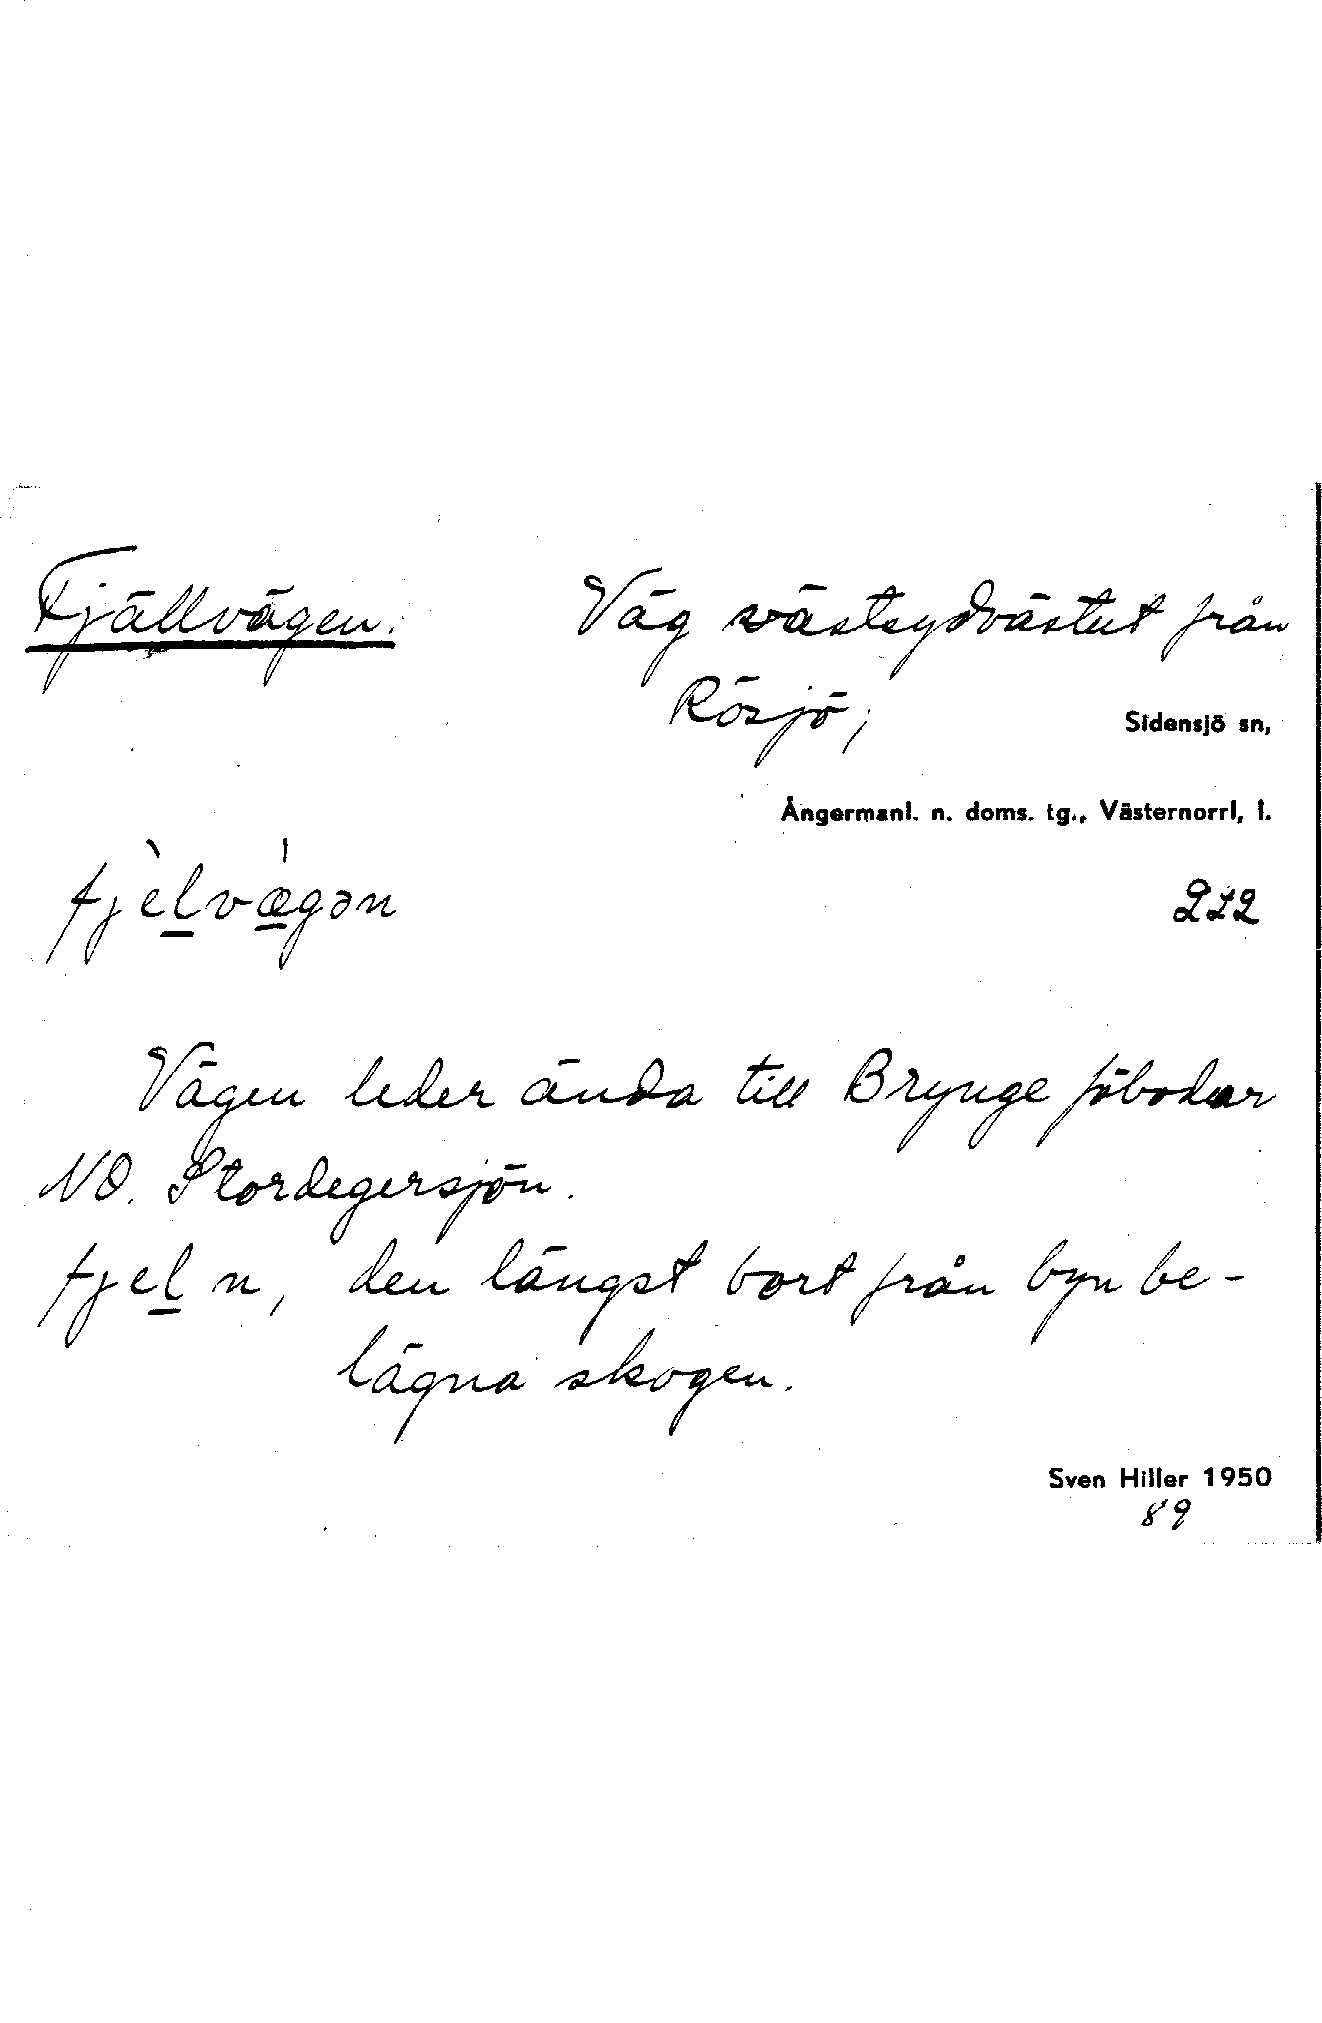 Fjällvägen. Väg västsydvästut från
Rösjö, Sidensjö sn,
Ångermanl. n. doms. tg., Västernorrl, l.
fjèl̲væ̲̀gən 212
Vägen leder ända till Brynge fäbodar
NO. Stordegersjön.
fjel̲ n, den längst bort från byn be-
lägna skogen.
Sven Hiller 1950
89